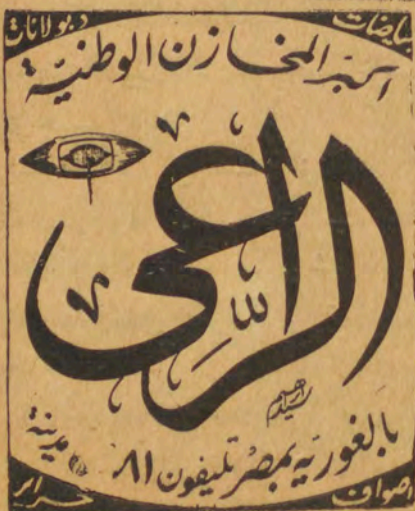 بياضات
دبولانات
اكبر المخازن الوطنية
الراعى
سيد ابراهيم
بالغورية بمصر تليفون ٨١ مدينة
اصواف
حراير